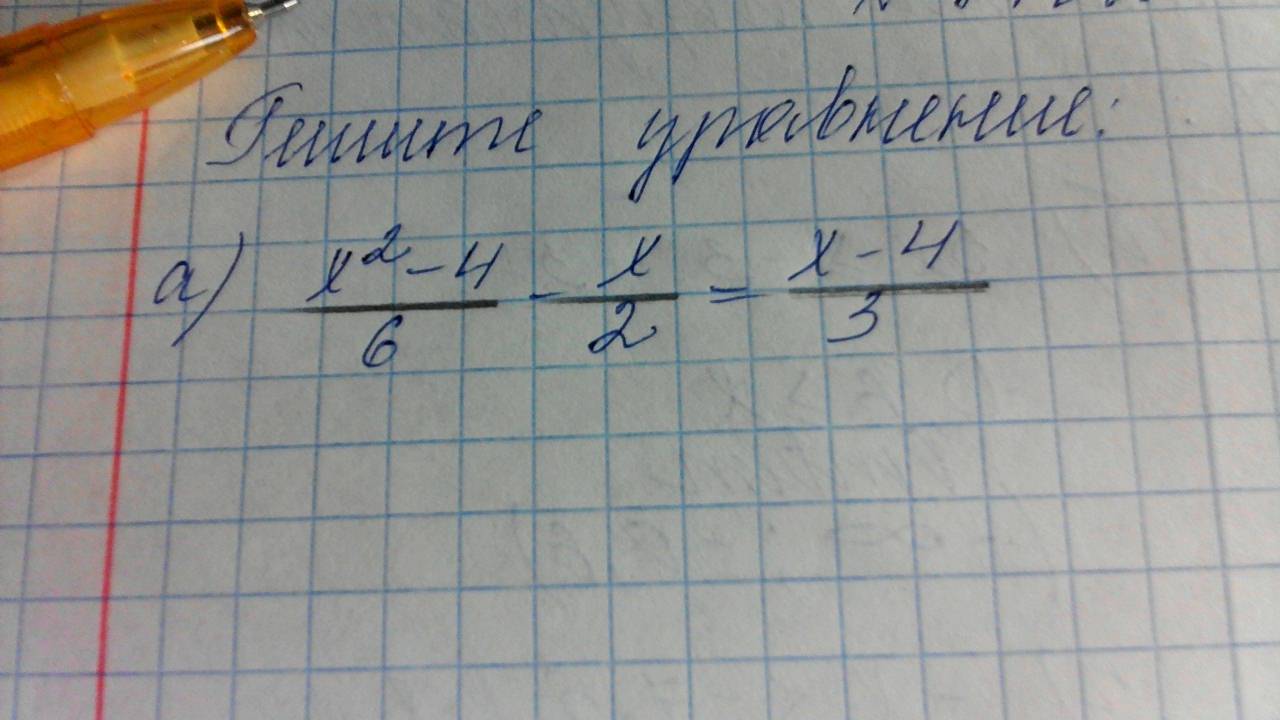 Решите уравнение:
а) x²-4/6 - x/2 = x-4/3